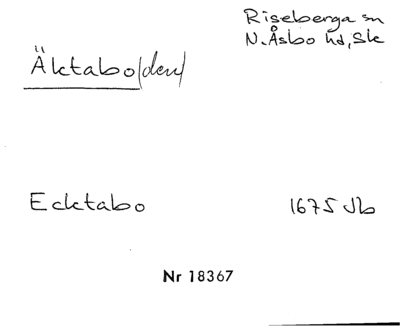 Riseberga sn
N. Åsbo hd, Sk
Äktabo/den/
Ecktabo 1675 Jb
Nr 18367